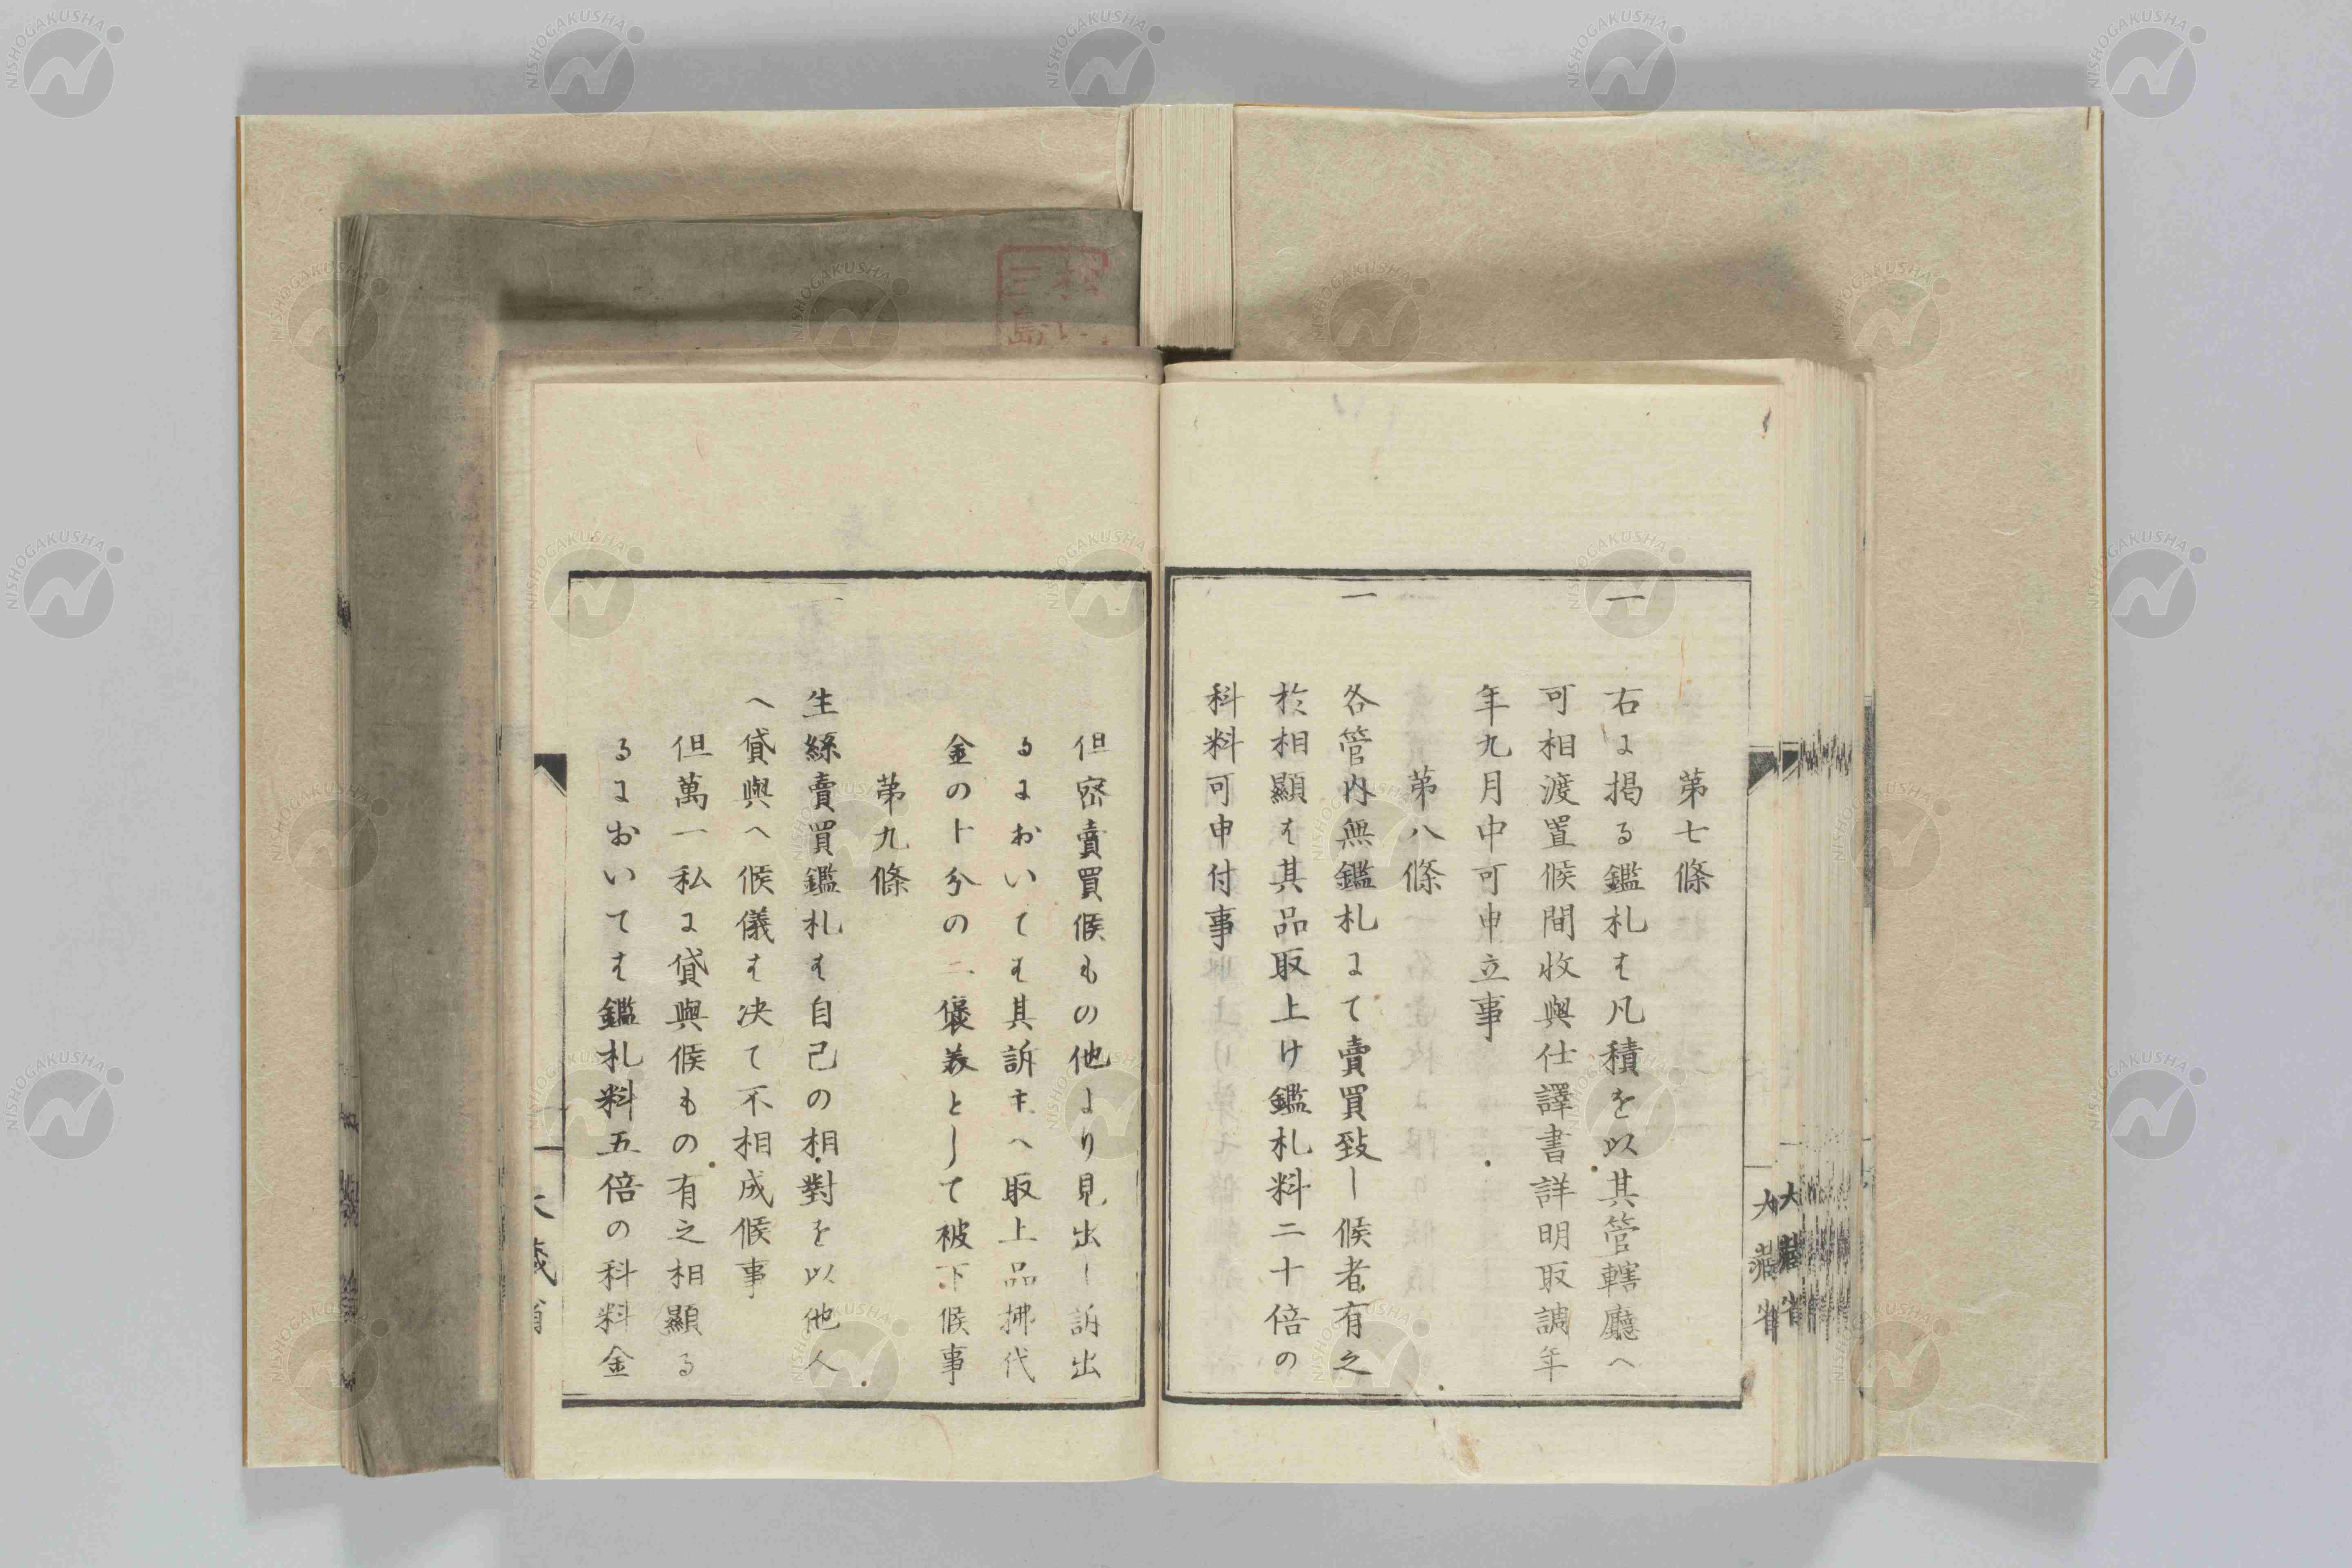 第七條
一 右に掲る鑑札は凡積を以其管轄廳へ
可相渡置候間收與仕譯書詳明取調年
年九月中可申立事
第八條
一 各管内無鑑札にて賣買致し候者有之
於相顯は其品取上け鑑札料二十倍の
科料可申付事
但密賣買候もの他より見出し訴出
るにおいては其訴主へ取上品拂代
金の十分の二褒美として被下候事
第九條
一 生絲賣買鑑札は自己の相對を以他人
へ貸與へ候儀は决て不相成候事
但萬一私に貸與候もの有之相顯る
るにおいては鑑札料五倍の科料金
大藏省
大藏省
大藏省
三島
NISHOGAKUSHA